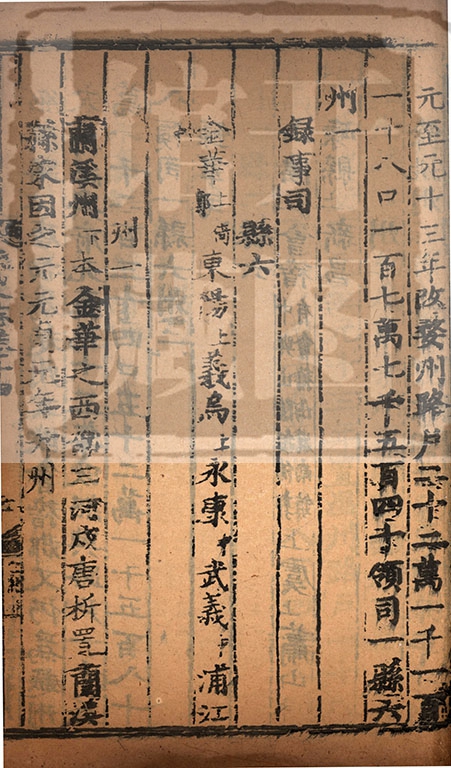 元至元十三年改婺州路戶二十二萬一千一百
一十八口一百七萬七千五百四十領司一縣六
州一
録事司
縣六
金華上倚郭東陽上義烏上永康中武義中浦江中
州一
蘭溪州下本金華之西部三河戍唐析置蘭溪
縣宋因之元元貞元年升州